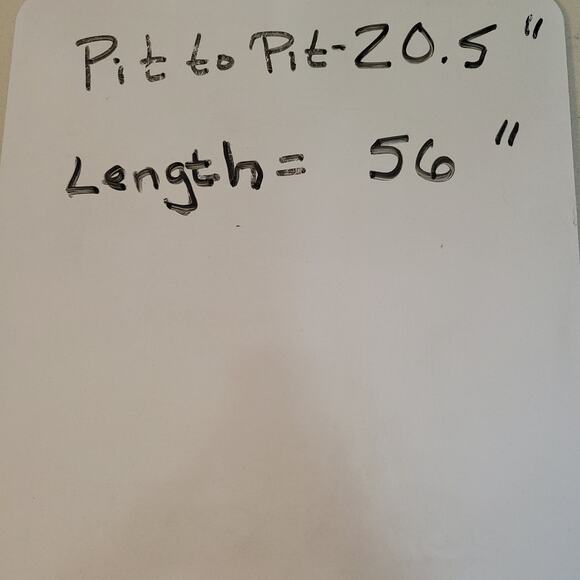 Pit to Pit-20.5"
Length= 56"